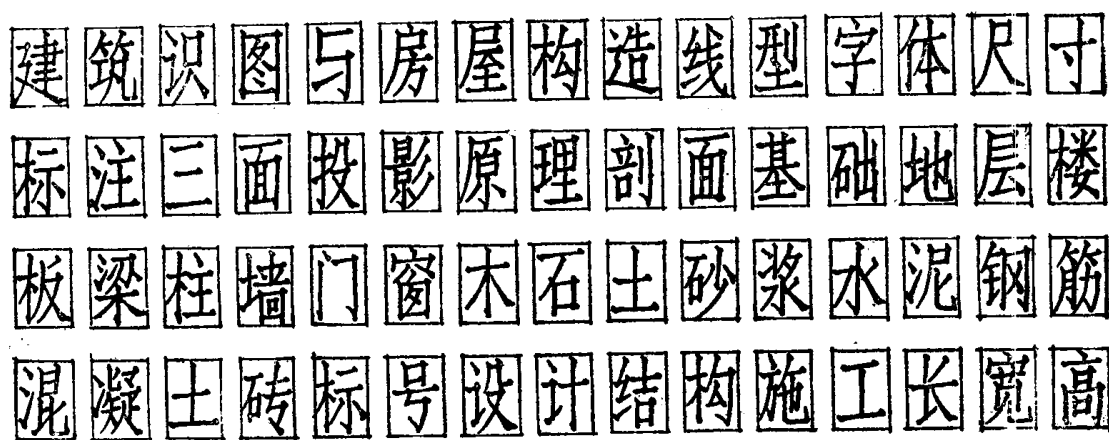 建筑识图与房屋构造线型字体尺寸
标注三面投影原理剖面基础地层楼
板梁柱墙门窗木石土砂浆水泥钢筋
混凝土砖标号设计结构施工长宽高